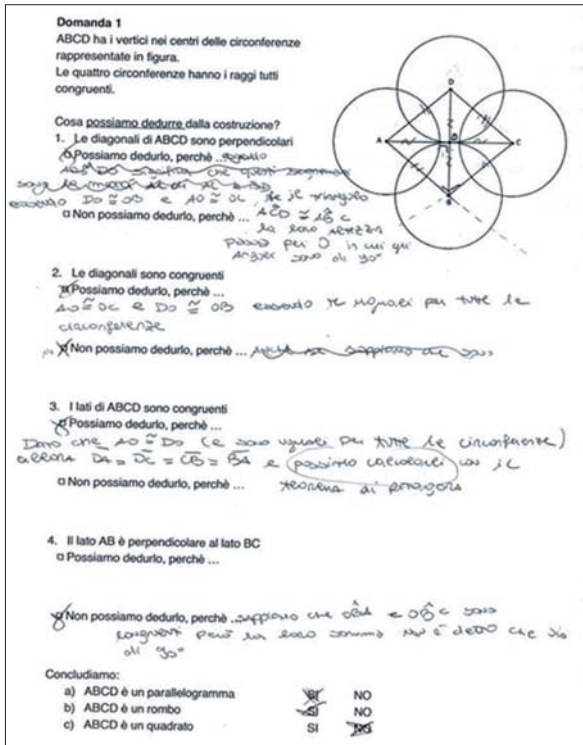 Domanda 1
ABCD ha i vertici nei centri delle circonferenze
rappresentate in figura.
Le quattro circonferenze hanno i raggi tutti
congruenti.
D
A
O
C
B
Cosa possiamo dedurre dalla costruzione?
1. Le diagonali di ABCD sono perpendicolari
Possiamo dedurlo, perchè ...
essendo DO ≅ OB e AO ≅ OC, se il triangolo
Non possiamo dedurlo, perchè ... ACD ≅ ABC
la loro altezza
passa per O in cui gli
angoli sono di 90°
2. Le diagonali sono congruenti
Possiamo dedurlo, perchè ...
AO ≅ OC e DO ≅ OB essendo r uguali per tutte le
circonferenze
Non possiamo dedurlo, perchè ... sappiamo che sono
3. I lati di ABCD sono congruenti
Possiamo dedurlo, perchè ...
Dato che AO ≅ DO (e sono uguali per tutte le circonferenze)
allora DA ≅ DC ≅ CB ≅ BA e possiamo calcolarli con il
Non possiamo dedurlo, perchè ... teorema di Pitagora
4. Il lato AB è perpendicolare al lato BC
Possiamo dedurlo, perchè ...
Non possiamo dedurlo, perchè ... sappiamo che OBA e OBC sono
congruenti però la loro somma non è detto che sia
di 90°
Concludiamo:
a) ABCD è un parallelogramma SI NO
b) ABCD è un rombo SI NO
c) ABCD è un quadrato SI NO